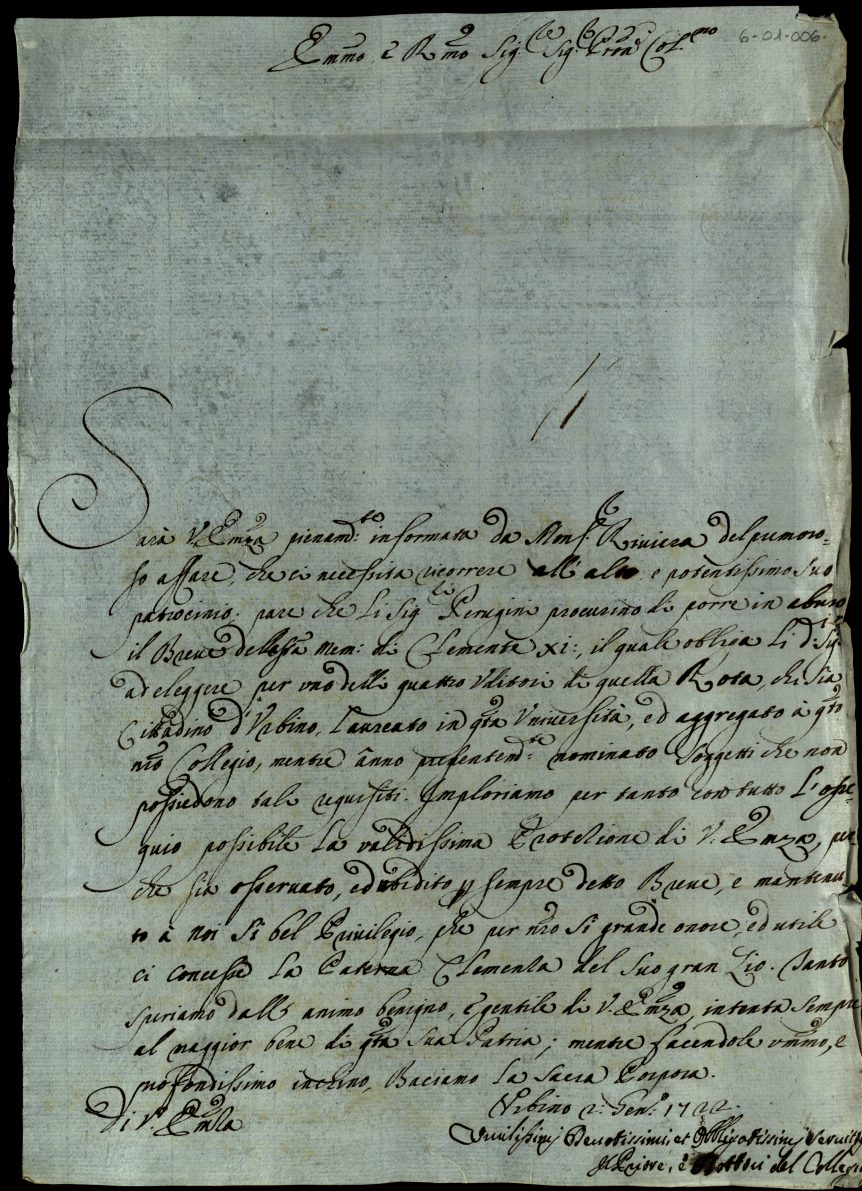 Emmo e Rmo Sig.re Sig.r Pron Col.mo
6-01-006.
Sarà V. Emza pienam.te informata da Mons.r Riviera del premoro=
so affare, che ci necessita ricorrere all' alto e potentissimo suo
patrocinio. pare che Li Sig.ri Perugini procurino di porre in abuso
il Breve della Sa: mem: di Clemente XI:, il quale obliga Li d.i Sig.ri
ad eleggere per uno delli quattro Uditori di quella Rota, chi sia
Cittadino d'Urbino, Laureato in q.ta Università, ed aggregato à q.to
nro Collegio, mentre ànno presentem.te nominato soggetti che non
possiedono tali requisiti. Imploriamo per tanto con tutto L'osse=
quio possibile La validissima Protetione di V. Emza, per
che sia osservato, ed ubidito p sempre detto Breve, e mantenu
to à noi si bel Privilegio, che per nro si grande onore, ed utile
ci concesse La Paterna Clemenza del suo gran Zio. Tanto
speriamo dall' animo benigno, e gentile di V. Emza, intenta sempre
al maggior bene di q.ta sua Patria; mentre facendole ummo, e
profondissimo inchino, Baciamo La Sacra Porpora.
Di V. Emza
Urbino 2: Gen.o 1722.
Umilissimi Devotissimi et Obbligatissimi Servit
Il Priore, e Dottori del Collegio